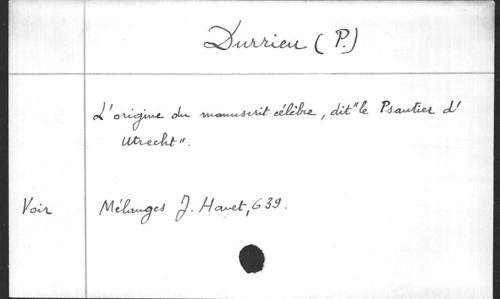 Durrieu (P.)
L'origine du manuscrit célèbre, dit "le Psautier d'
Utrecht".
Voir Mélanges J. Havet, 639.